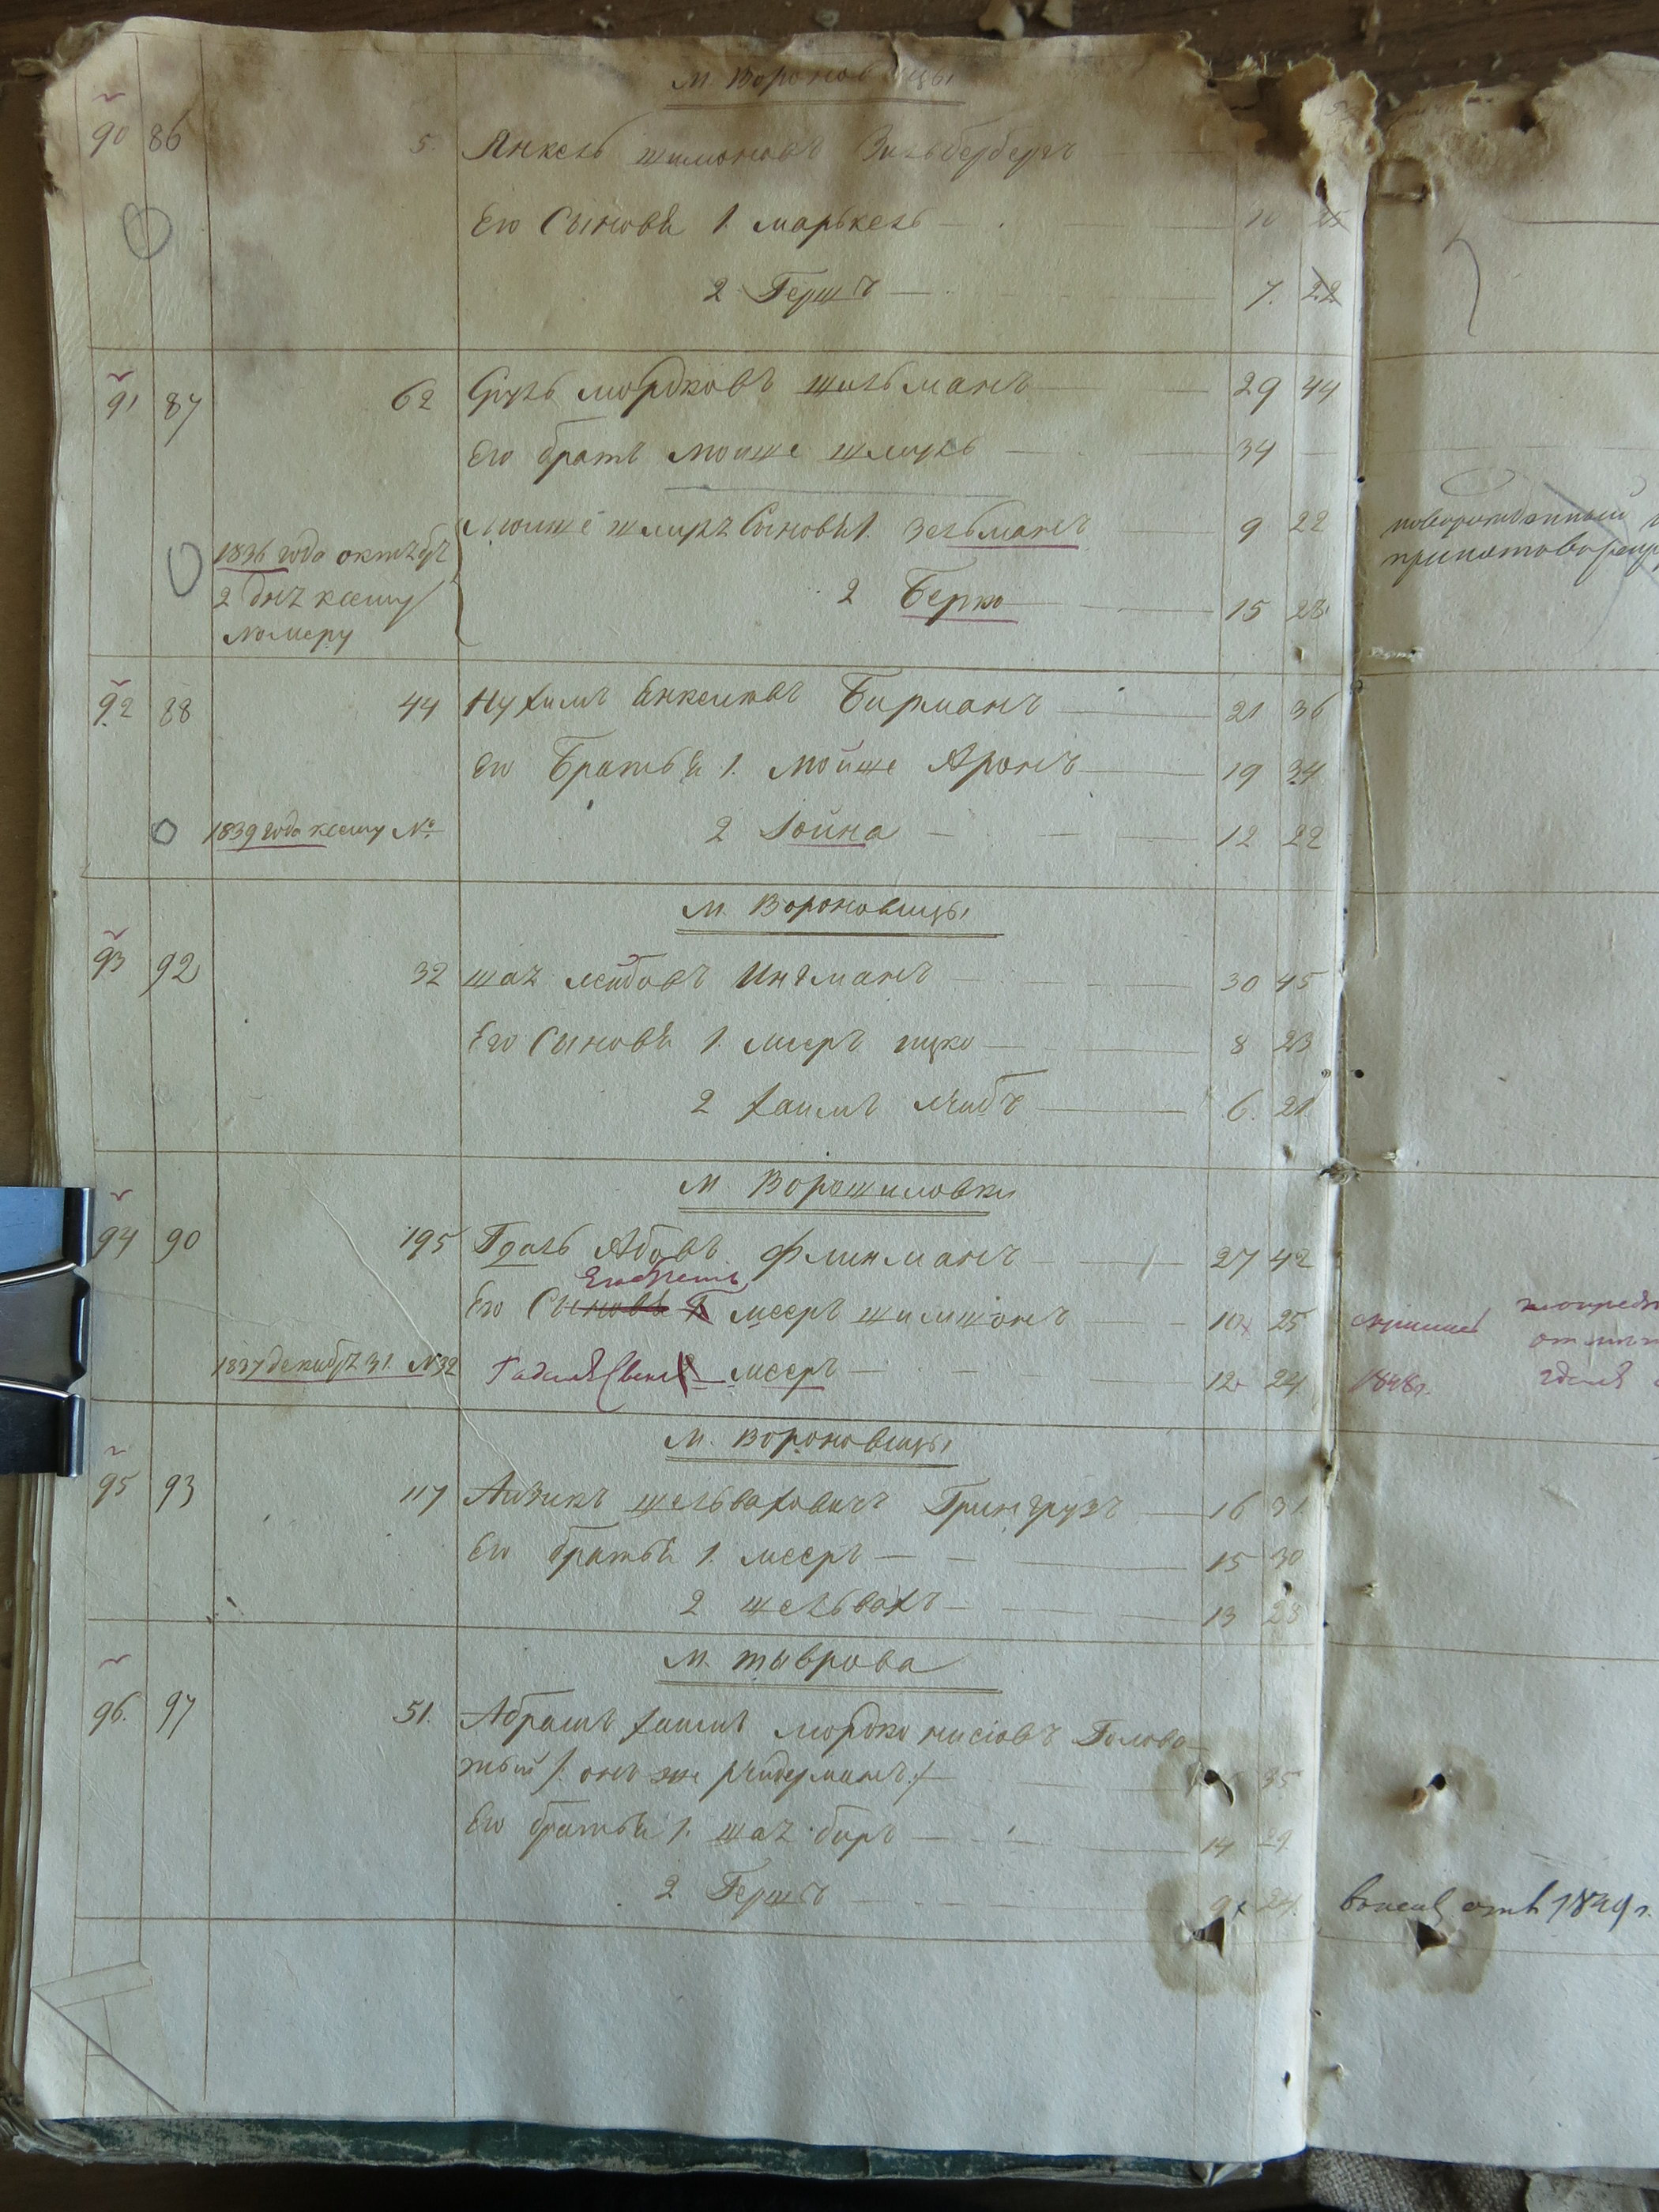 м. Вороновицы
90 86 5. Янкель шимоновъ Зильберберъ
Его Сыновья 1. марькель — 10 25
2 Гершъ — 7. 22
91 87 62 Сруль мордковъ шильманъ — 29 44
Его братъ мойше шмуль — 34 —
Мойше шмуля Сыновья 1. Зельманъ — 9 22
1836 года октября
2 дня к сему
номеру
2 Берко — 15 28
новорожденный
92 88 44 Нухимъ Енкелевъ Бирманъ — 21 36
Его Братья 1. Мойше Аронъ — 19 34
1839 года к сему № 2 Іойна — 12 22
м. Вороновицы
93 92 32 шая лейбовъ Ингманъ — 30 45
Его Сыновья 1. мееръ ицко — 8 23
2 хаимъ лейбъ — 6. 21
м. Ворошиловки
94 90 195 Гдаль Абовъ Флинманъ — 27 42
Его братъ
Его Сыновья 1 мееръ шимшонъ — 10 25
1837 декабря 31. №32 мееръ — 12 24 1848 г.
м. Вороновицы
95 93 117 Айзикъ шельваховичъ Грингрузъ — 16 31
Его братья 1. мееръ — 15 30
2 шельвахъ — 13 28
м. тыврова
96. 97 51. Абрамъ хаимъ мордко нисіовъ Голова-
тый /: онъ же Рейдерманъ :/ — 35
Его братья 1. шая беръ — 14 29
2 Гершъ — 9 24. 1849 г.